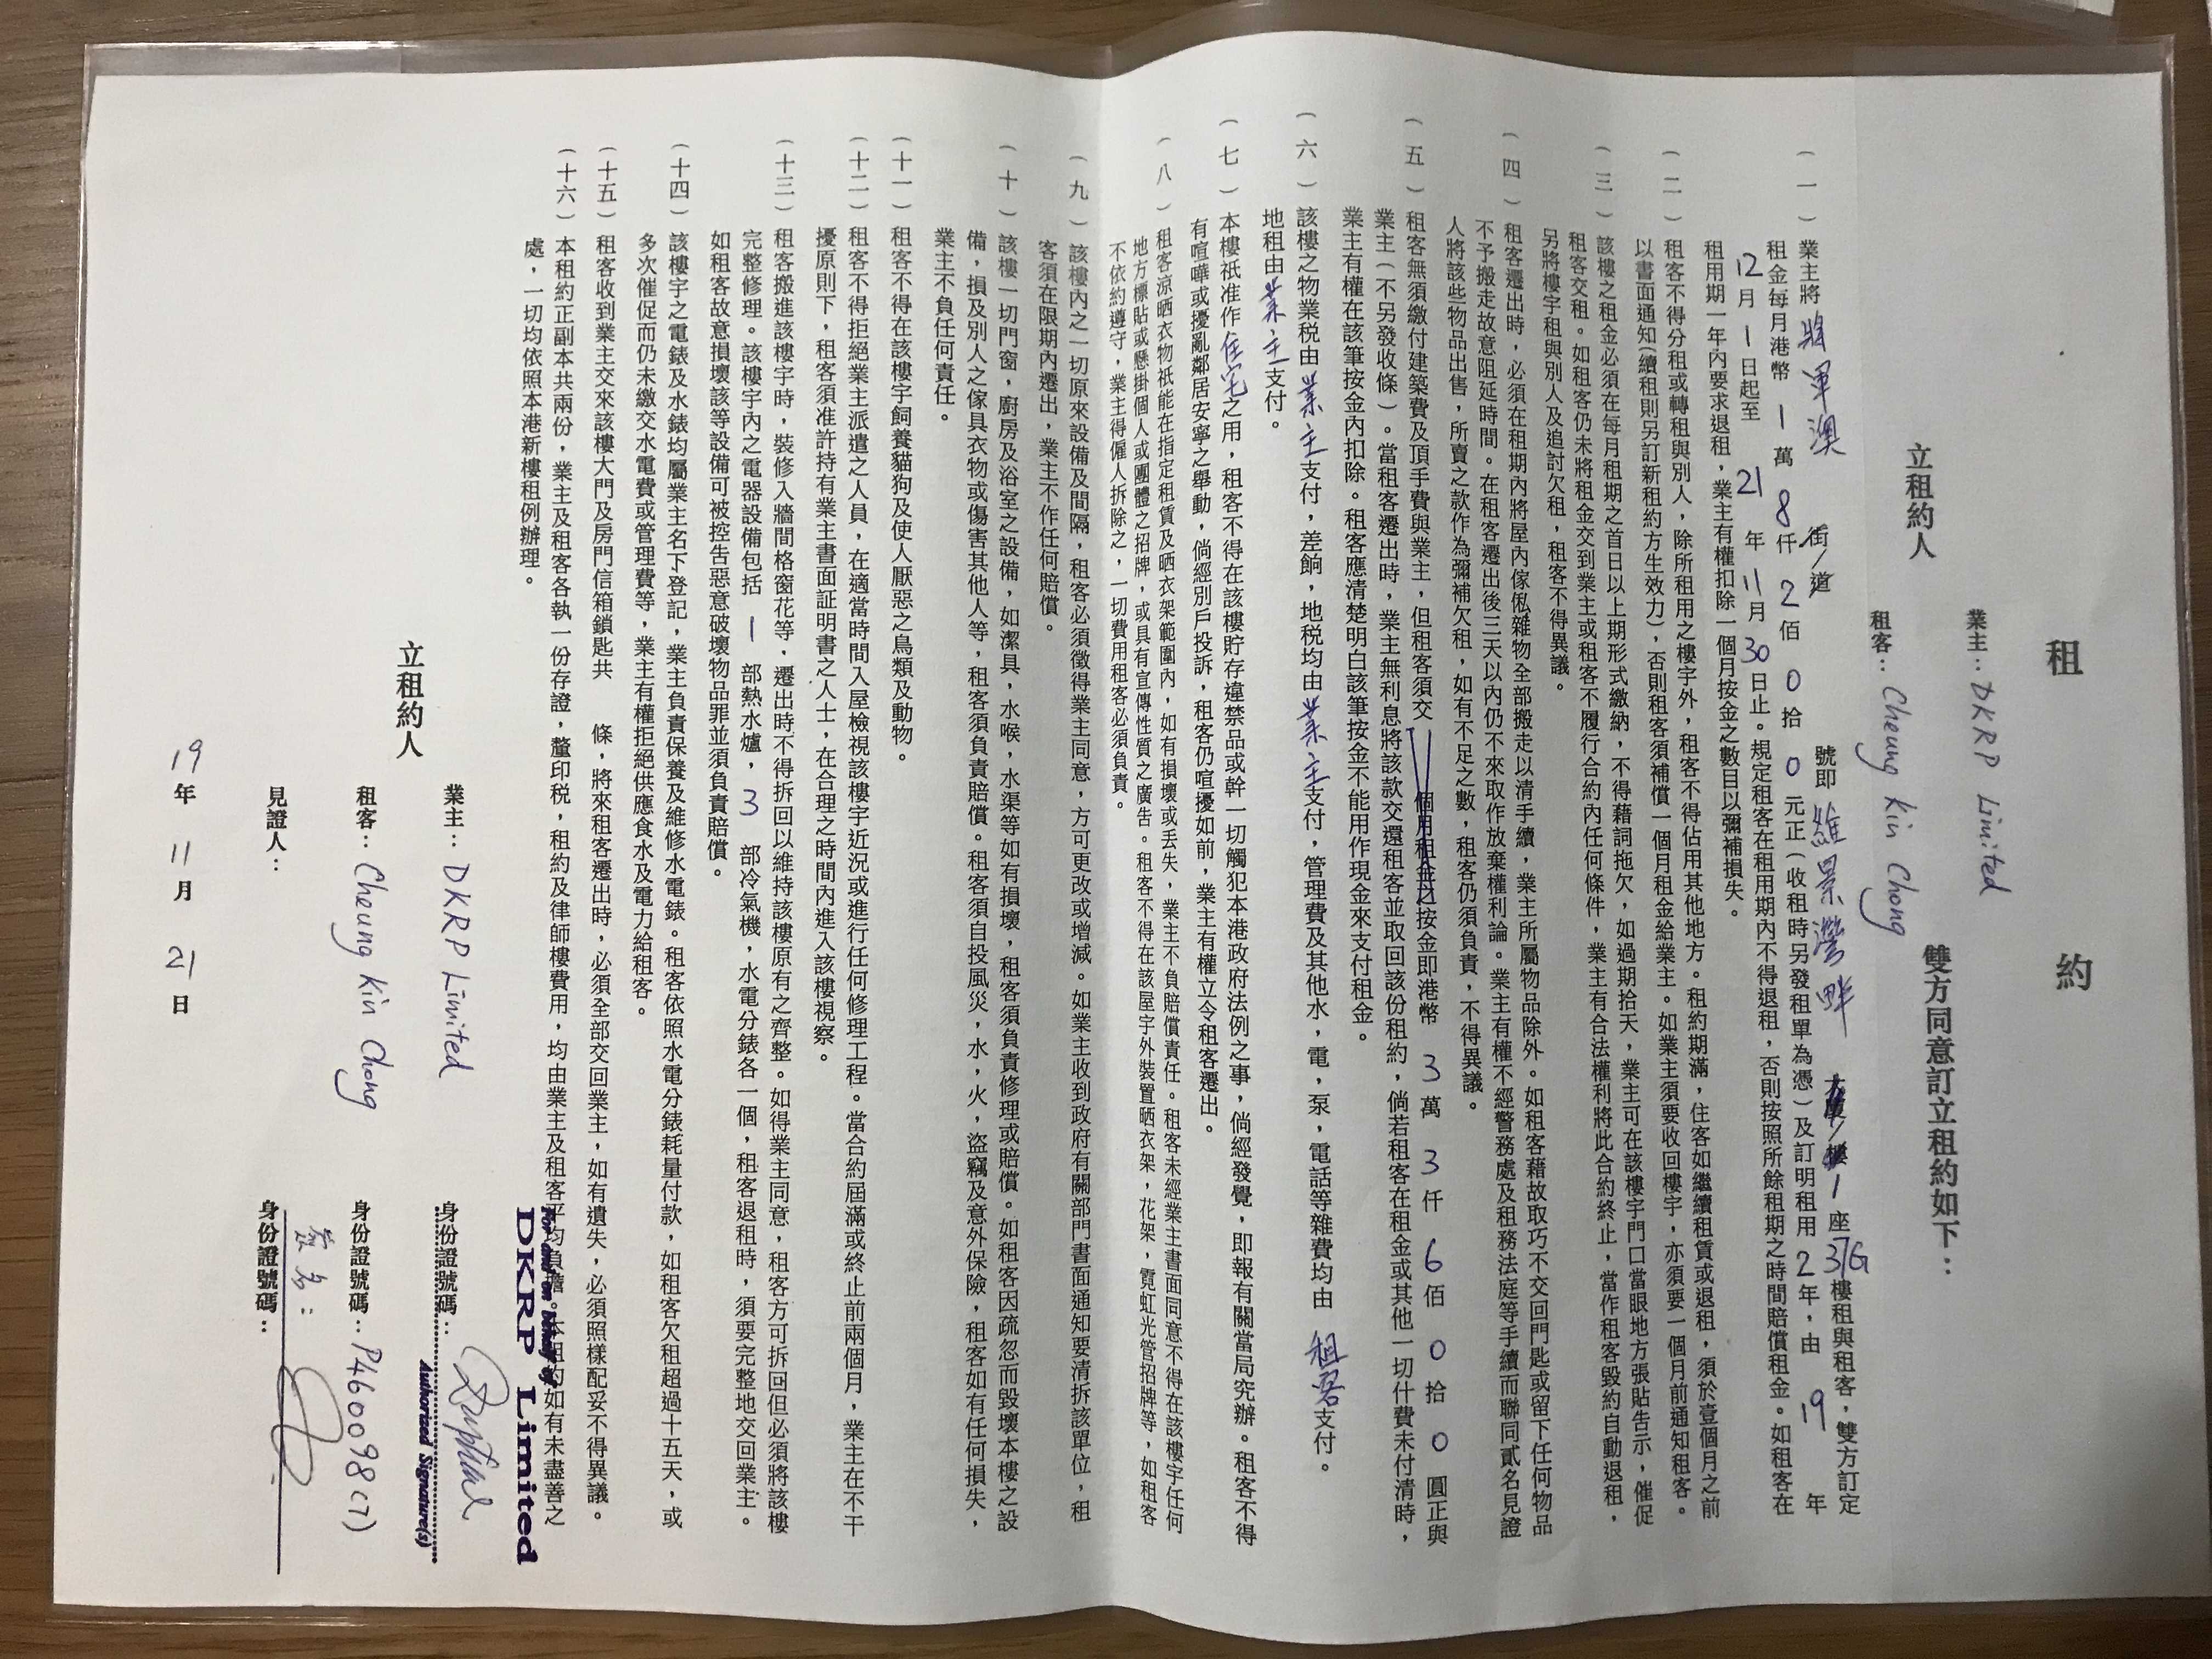 租約
業主：DKRP Limited
立租約人 雙方同意訂立租約如下：
租客：Cheung Kin Chong
（一）業主將將軍澳 街/道 號即維景灣畔 大廈/樓 1 座 37G 樓租與租客，雙方訂定
租金每月港幣 1 萬 8 仟 2 佰 0 拾 0 元正（收租時另發租單為憑）及訂明租用 2 年，由 19 年
12 月 1 日起至 21 年 11 月 30 日止。規定租客在租用期內不得退租，否則按照所餘租期之時間賠償租金。如租客在
租用期一年內要求退租，業主有權扣除一個月按金之數目以彌補損失。
（二）租客不得分租或轉租與別人，除所租用之樓宇外，租客不得佔用其他地方。租約期滿，住客如繼續租賃或退租，須於壹個月之前
以書面通知（續租則另訂新租約方生效力），否則租客須補償一個月租金給業主。如業主須要收回樓宇，亦須要一個月前通知租客。
（三）該樓之租金必須在每月租期之首日以上期形式繳納，不得藉詞拖欠，如過期拾天，業主可在該樓宇門口當眼地方張貼告示，催促
租客交租。如租客仍未將租金交到業主或租客不履行合約內任何條件，業主有合法權利將此合約終止，當作租客毀約自動退租，
另將樓宇租與別人及追討欠租，租客不得異議。
（四）租客遷出時，必須在租期內將屋內傢俬雜物全部搬走以清手續，業主所屬物品除外。如租客藉故取巧不交回門匙或留下任何物品
不予搬走故意阻延時間。在租客遷出後三天以內仍不來取作放棄權利論。業主有權不經警務處及租務法庭等手續而聯同貳名見證
人將該些物品出售，所賣之款作為彌補欠租，如有不足之數，租客仍須負責，不得異議。
（五）租客無須繳付建築費及頂手費與業主，但租客須交 個月租金之按金即港幣 3 萬 3 仟 6 佰 0 拾 0 圓正與
業主（不另發收條）。當租客遷出時，業主無利息將該款交還租客並取回該份租約，倘若租客在租金或其他一切什費未付清時，
業主有權在該筆按金內扣除。租客應清楚明白該筆按金不能用作現金來支付租金。
（六）該樓之物業税由業主支付，差餉，地税均由業主支付，管理費及其他水，電，泵，電話等雜費均由租客支付。
地租由業主支付。
（七）本樓祇准作住宅之用，租客不得在該樓貯存違禁品或幹一切觸犯本港政府法例之事，倘經發覺，即報有關當局究辦。租客不得
有喧嘩或擾亂鄰居安寧之舉動，倘經別戶投訴，租客仍喧擾如前，業主有權立令租客遷出。
（八）租客涼晒衣物祇能在指定租賃及晒衣架範圍內，如有損壞或丟失，業主不負賠償責任。租客未經業主書面同意不得在該樓宇任何
地方標貼或懸掛個人或團體之招牌，或具有宣傳性質之廣告。租客不得在該屋宇外裝置晒衣架，花架，霓虹光管招牌等，如租客
不依約遵守，業主得僱人拆除之，一切費用租客必須負責。
（九）該樓內之一切原來設備及間隔，租客必須徵得業主同意，方可更改或增減。如業主收到政府有關部門書面通知要清拆該單位，租
客須在限期內遷出，業主不作任何賠償。
（十）該樓一切門窗，廚房及浴室之設備，如潔具，水喉，水渠等如有損壞，租客須負責修理或賠償。如租客因疏忽而毀壞本樓之設
備，損及別人之傢具衣物或傷害其他人等，租客須負責賠償。租客須自投風災，水，火，盜竊及意外保險，租客如有任何損失，
業主不負任何責任。
（十一）租客不得在該樓宇飼養貓狗及使人厭惡之鳥類及動物。
（十二）租客不得拒絕業主派遣之人員，在適當時間入屋檢視該樓宇近況或進行任何修理工程。當合約屆滿或終止前兩個月，業主在不干
擾原則下，租客須准許持有業主書面証明書之人士，在合理之時間內進入該樓視察。
（十三）租客搬進該樓宇時，裝修入牆間格窗花等，遷出時不得拆回以維持該樓原有之齊整。如得業主同意，租客方可拆回但必須將該樓
完整修理。該樓宇內之電器設備包括 1 部熱水爐，3 部冷氣機，水電分錶各一個，租客退租時，須要完整地交回業主。
如租客故意損壞該等設備可被控告惡意破壞物品罪並須負責賠償。
（十四）該樓宇之電錶及水錶均屬業主名下登記，業主負責保養及維修水電錶。租客依照水電分錶耗量付款，如租客欠租超過十五天，或
多次催促而仍未繳交水電費或管理費等，業主有權拒絕供應食水及電力給租客。
（十五）租客收到業主交來該樓大門及房門信箱鎖匙共 條，將來租客遷出時，必須全部交回業主，如有遺失，必須照樣配妥不得異議。
（十六）本租約正副本共兩份，業主及租客各執一份存證，釐印税，租約及律師樓費用，均由業主及租客平均負擔。本租約如有未盡善之
處，一切均依照本港新樓租例辦理。
For and on behalf of
DKRP Limited
Authorized Signature(s)
業主：DKRP Limited 身份證號碼：
立租約人
租客：Cheung Kin Chong 身份證號碼：P460098(7)
簽名：
見證人： 身份證號碼：
19 年 11 月 21 日